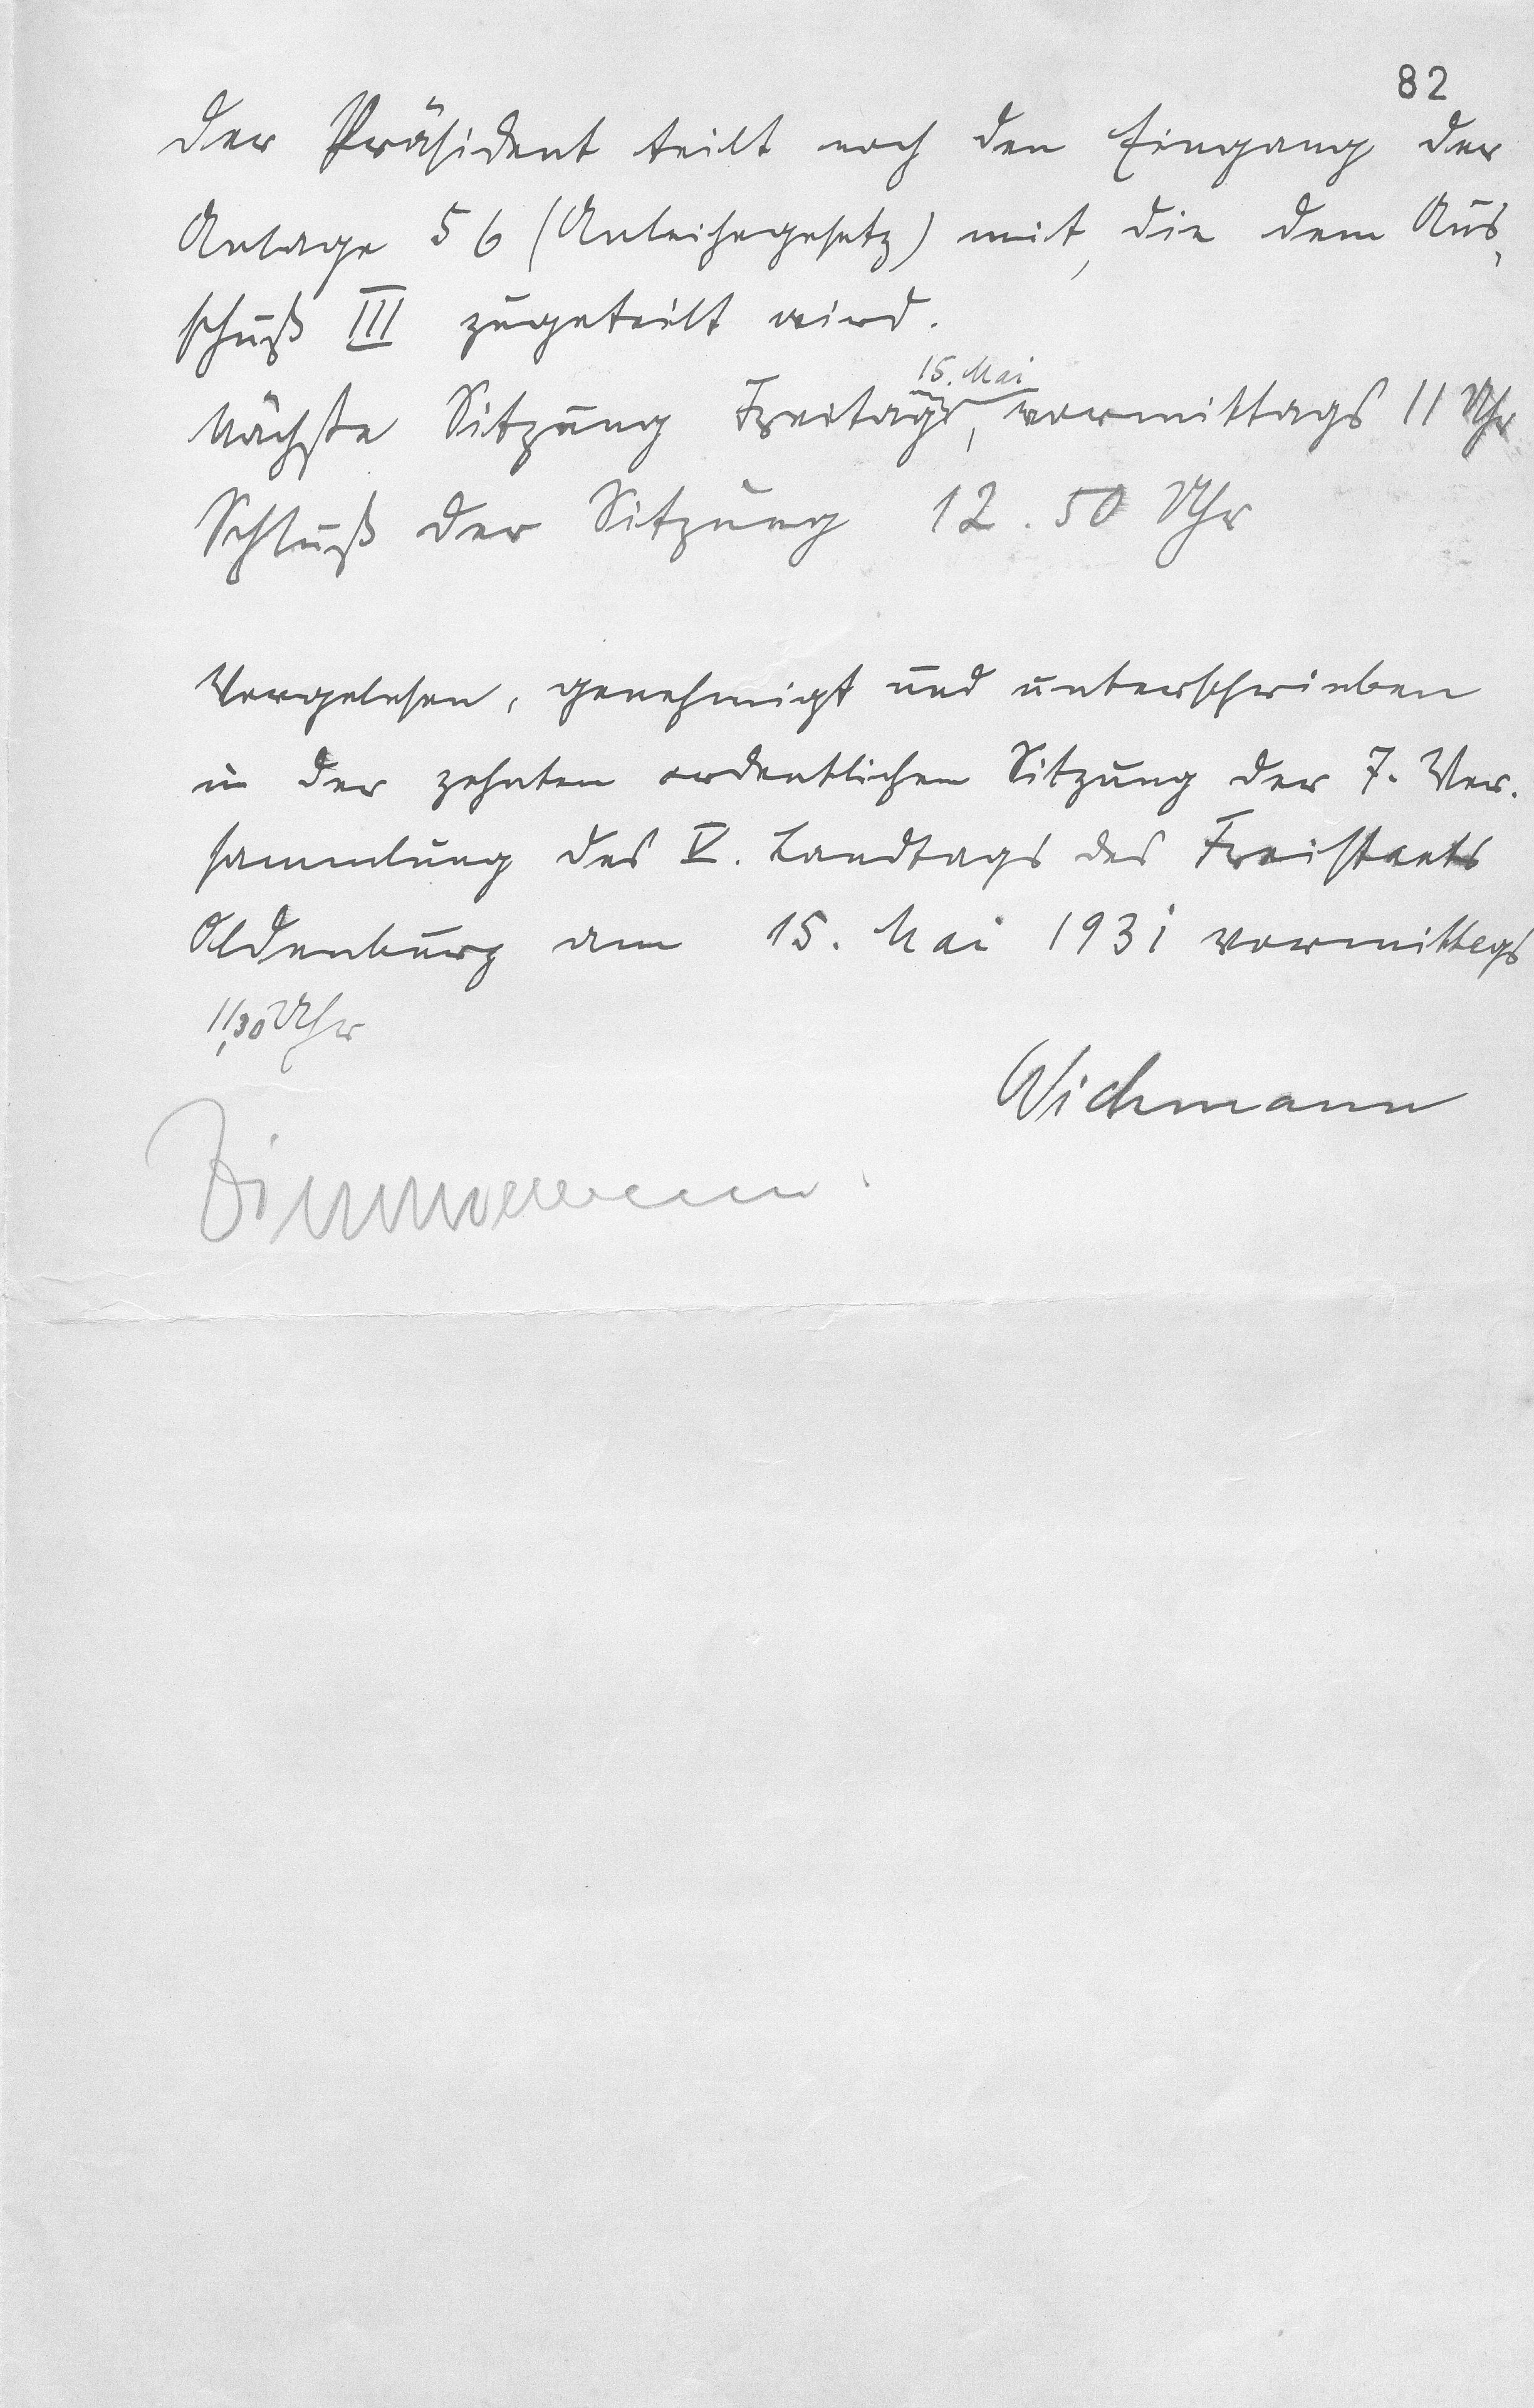 82
Der Präsident teilt noch den Eingang der
Anlage 56 (Anleihegesetz) mit, die dem Aus-
schuß III zugeteilt wird.
15. Mai
Nächste Sitzung Freitag, vormittags 11 Uhr
Schluß der Sitzung 12.50 Uhr
Vorgelesen, genehmigt und unterschrieben
in der zehnten ordentlichen Sitzung der 7. Ver-
sammlung des V. Landtags des Freistaats
Oldenburg am 15. Mai 1931 vormittags
11,30 Uhr
Wichmann
Zimmermann.